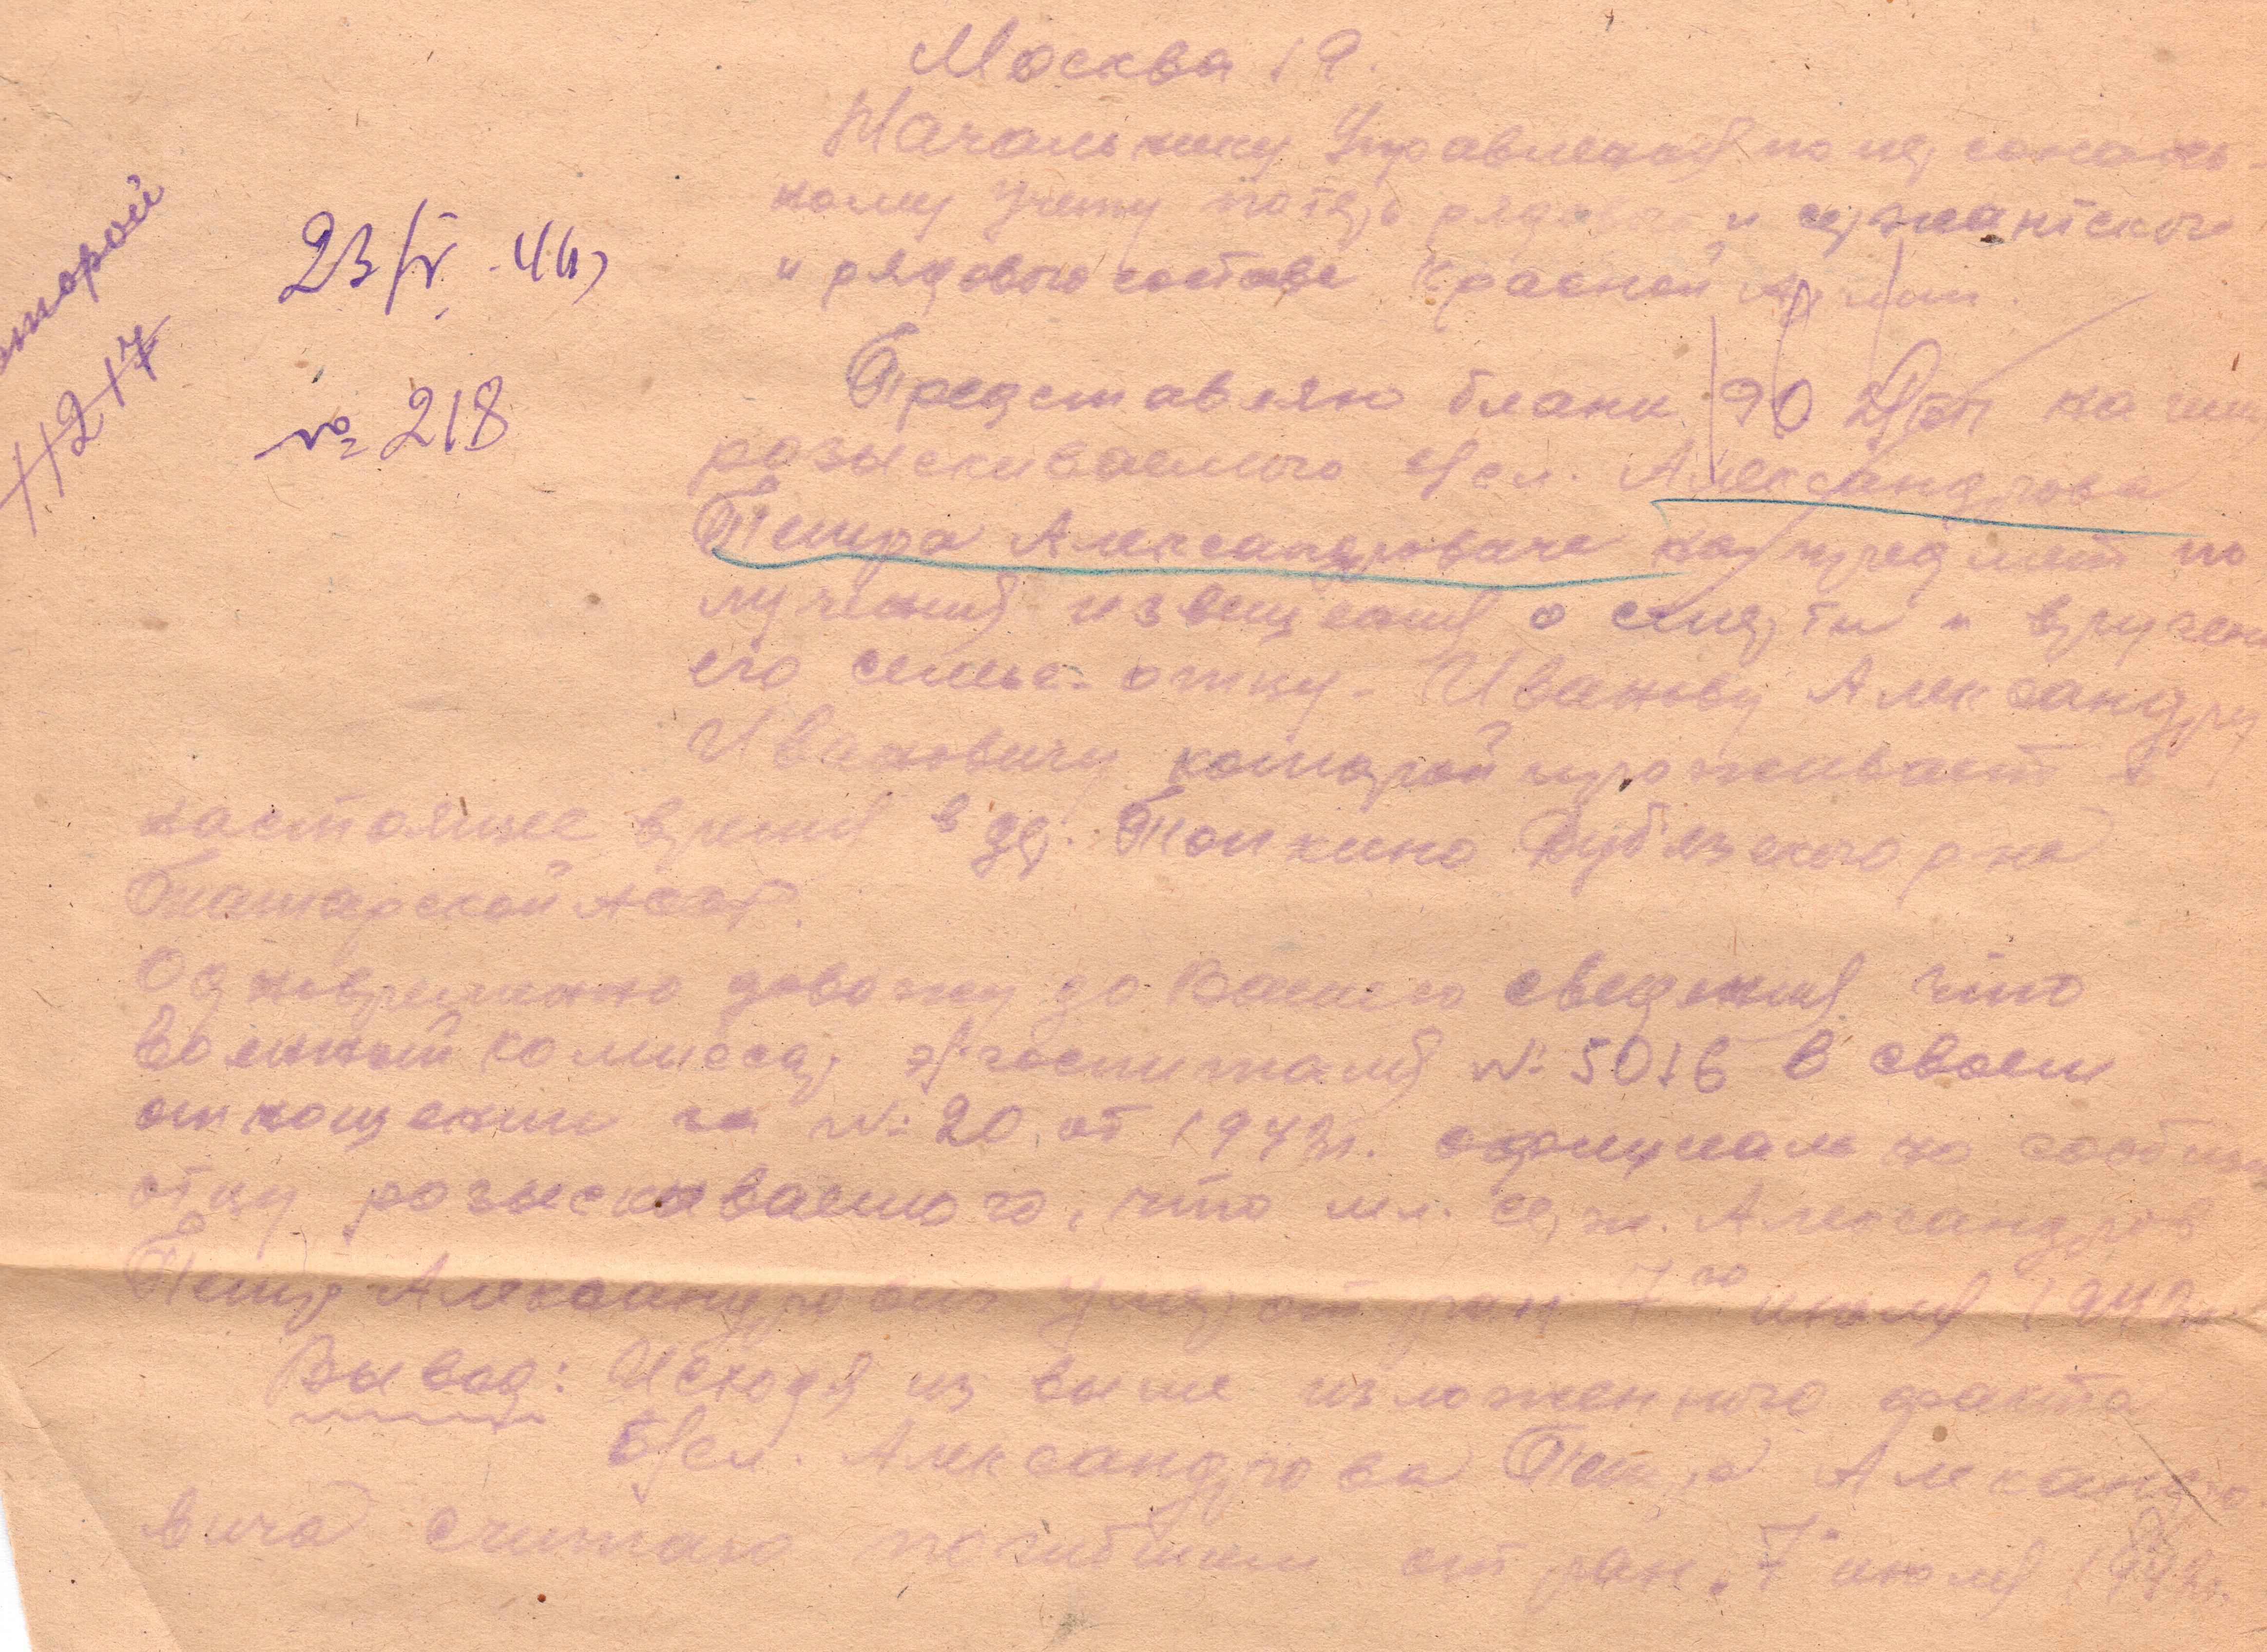 Москва 19.
Начальнику Управления по персональ-
ному учету потерь рядово и сержантского
и рядового состава Красной Армии.
второй
11217
23/V-44г
№ 218
Представляю бланк 90 на
розыскиваемого в/сл. Александрова
Петра Александровича на предмет по
лучения извещения о смерти и вручен
его семье-отцу-Иванову Александру
Ивановичу который проживает в
настоящее время в дер. Кубязского р-на
Татарской АССР.
Одновременно довожу до Вашего сведения что
военный комиссар э/госпиталя № 5016 в своем
отношении за № 20 от 1942г. официально сообщил
отцу розыскиваемого, что мл. серж. Александров
Петр Александрович умер от ран 7го июля 1942г.
Вывод: Исходя из выше изложенного факта
в/сл. Александрова Петра Александро
вича считаю погибшим от ран „7" июля 1942г.